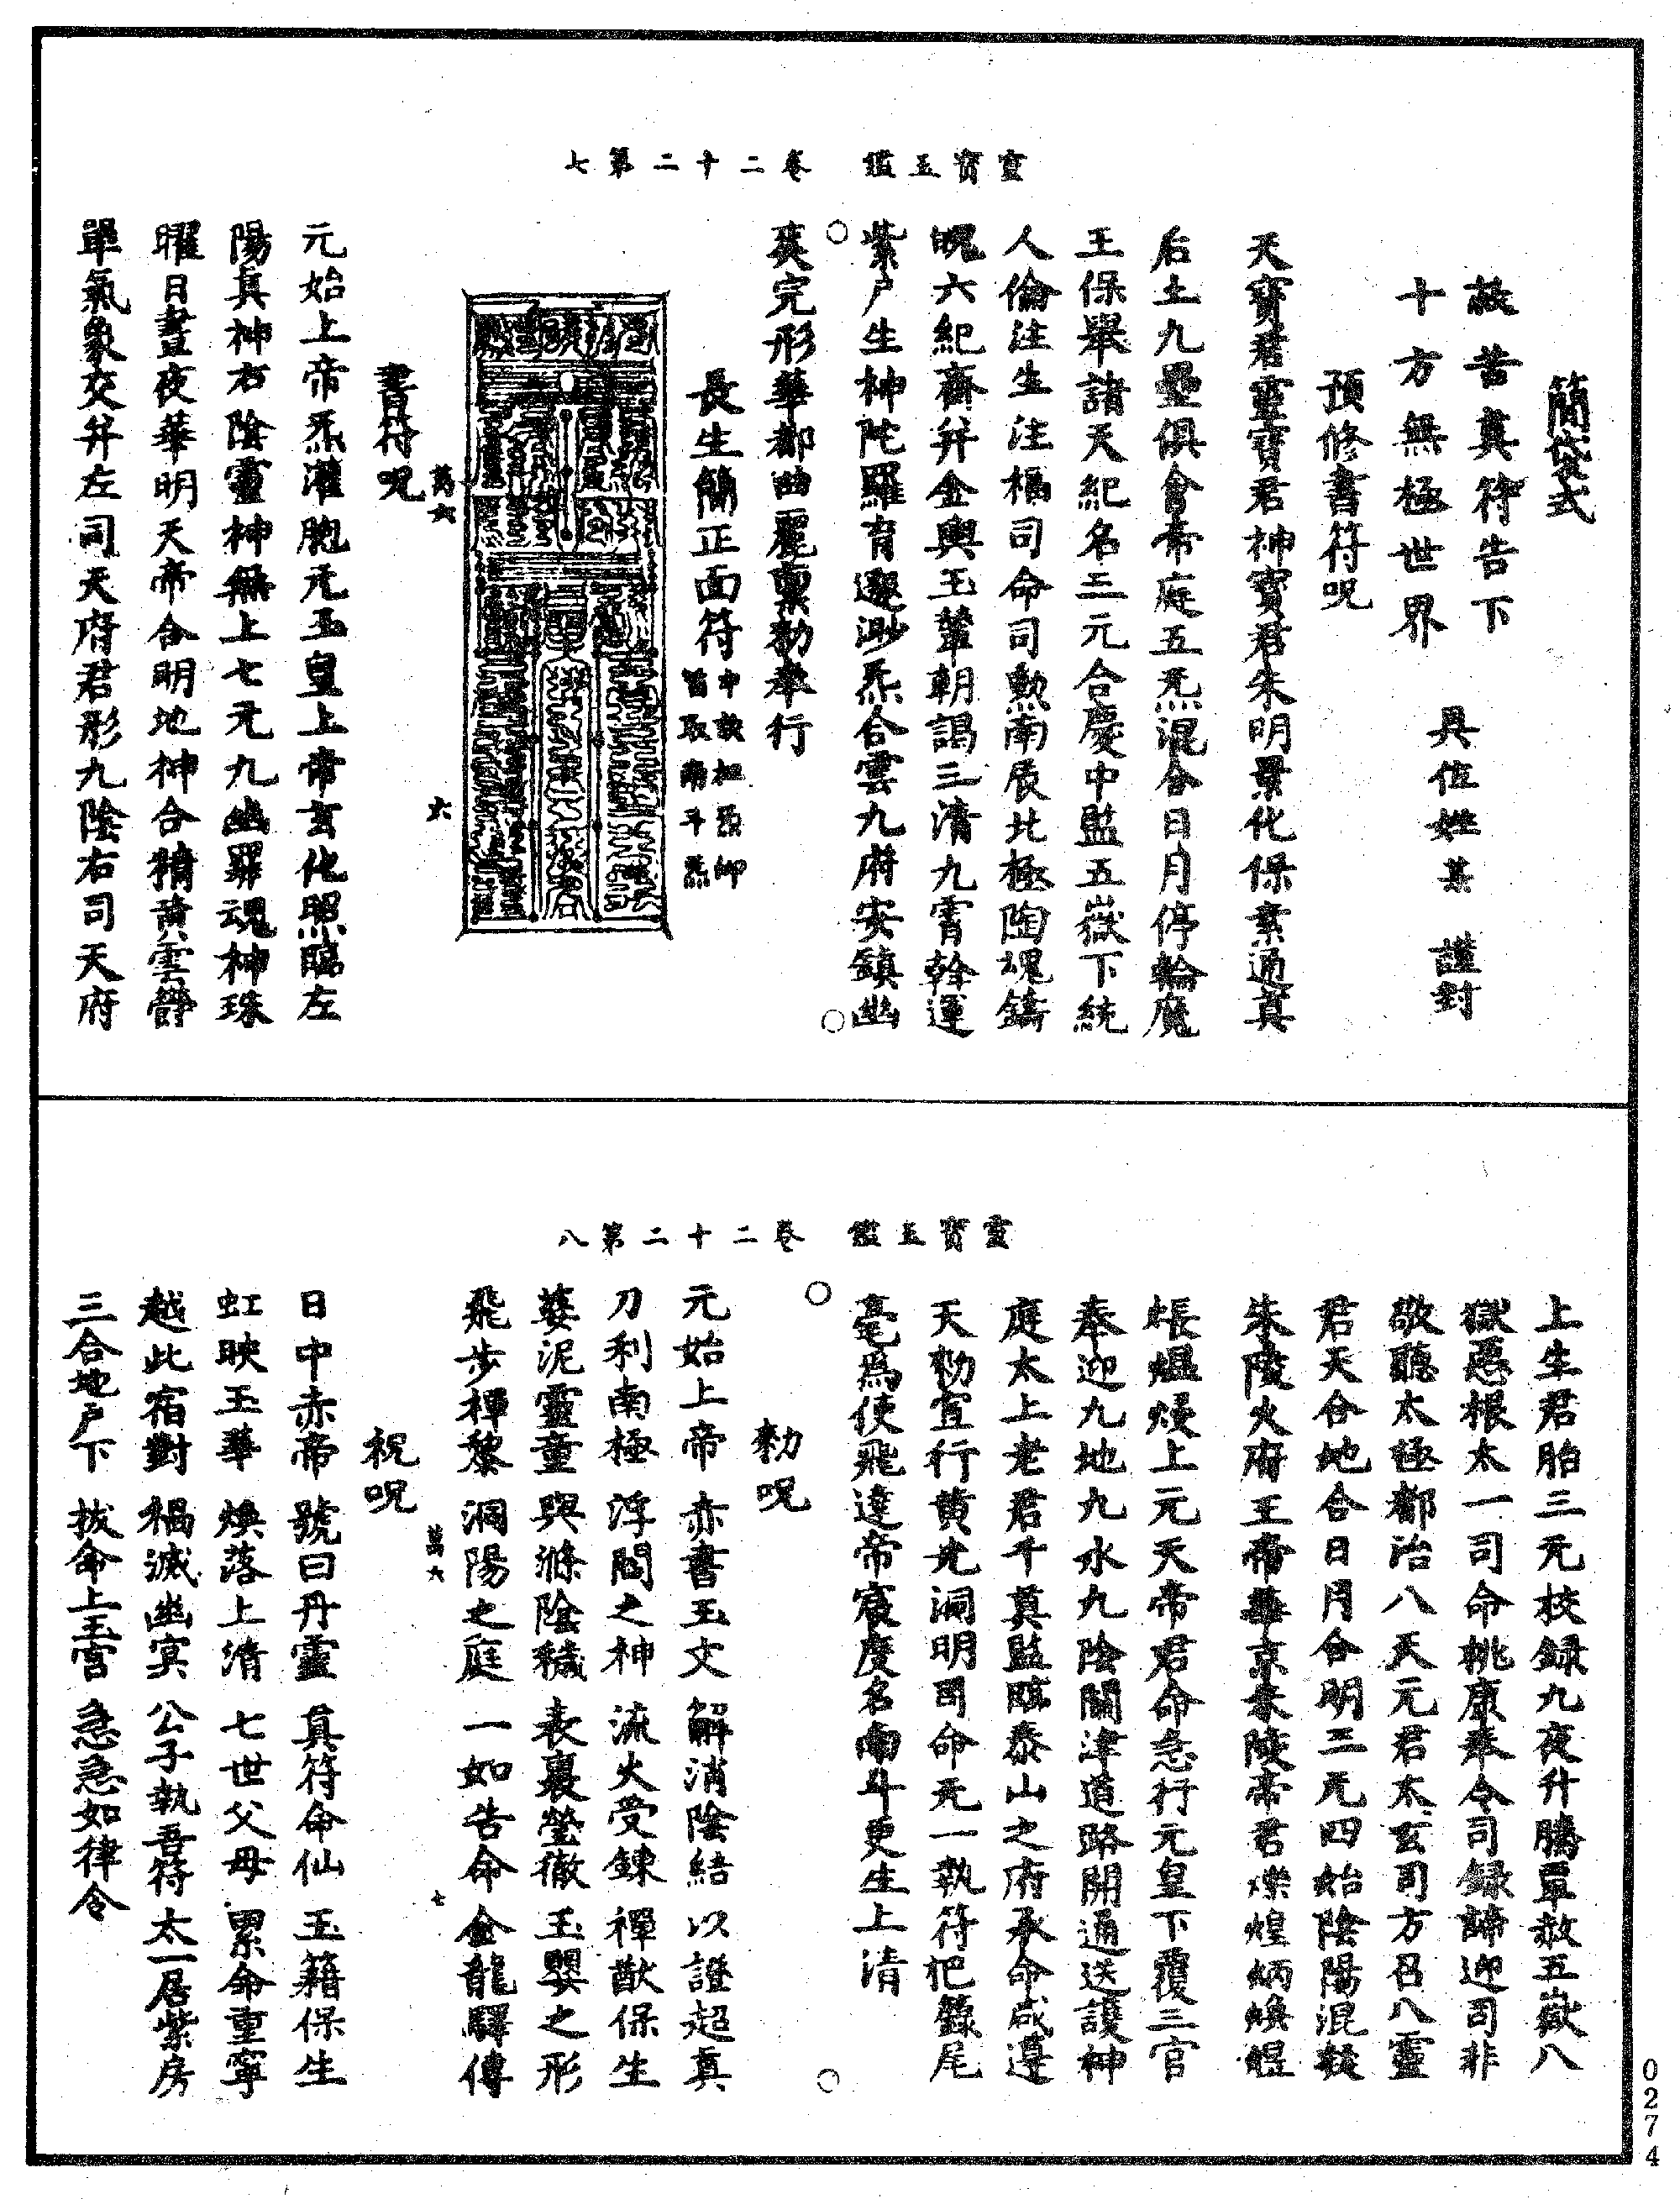 靈寶玉鑑　卷二十二第七
簡袋式
敕告真符告下
十方無極世界　具位姓某　謹封
預修書符呪
天寶君靈寶君神寶君朱明景化保素通真
后土九壘俱會帝庭五炁混合日月停輪魔
王保舉諸天紀名三元合慶中監五嶽下統
人倫注生注福司命司勳南辰北極陶魂鑄
魄六紀齋并金輿玉輦朝謁三清九霄斡運
紫戶生神陀羅育邈渺炁合雲九府安鎮幽
爽完形華都曲麗稟勑奉行
長生簡正面符
書符呪
萬六
六
元始上帝炁灌胞元玉皇上帝玄化照臨左
陽真神右陰靈神無上七元九幽罪魂神珠
曜日晝夜華明天帝合明地神合精黃雲鬱
單氣象交并左司天府君形九陰右司天府
靈寶玉鑑　卷二十二第八
上生君胎三元校録九夜升騰罩赦五嶽八
獄惡根太一司命桃康奉令司録諦迎司非
敬聽太極都治八天元君太玄司方召八靈
君天合地合日月合明三元四始陰陽混凝
朱陵火府王帝華京朱陵帝君爍煌炳煥焜
上元天帝君命急行元皇下覆三官
奉迎九地九水九陰關津道路開通送護神
庭太上老君千真監臨泰山之府承命咸遵
天勑宣行黃光洞明司命元一執符把籙尾
毫為使飛達帝宸度名南斗更生上清
勑呪
元始上帝　赤書玉文　解消陰結　以證超真
刀利南極　浮閻之神　流火受鍊　禪猷保生
蔞泥靈童　與滌陰穢　表裏瑩徹　玉嬰之形
飛步禪黎　洞陽之庭　一如告命　金龍驛傳
萬六
七
祝呪
日中赤帝　號曰丹靈　真符命仙　玉籍保生
虹映玉華　煥落上清　七世父母　累命重寧
越此宿對　禍滅幽冥　公子執吾符　太一居紫房
三合地戶下　拔命上玉宮　急急如律令
0274